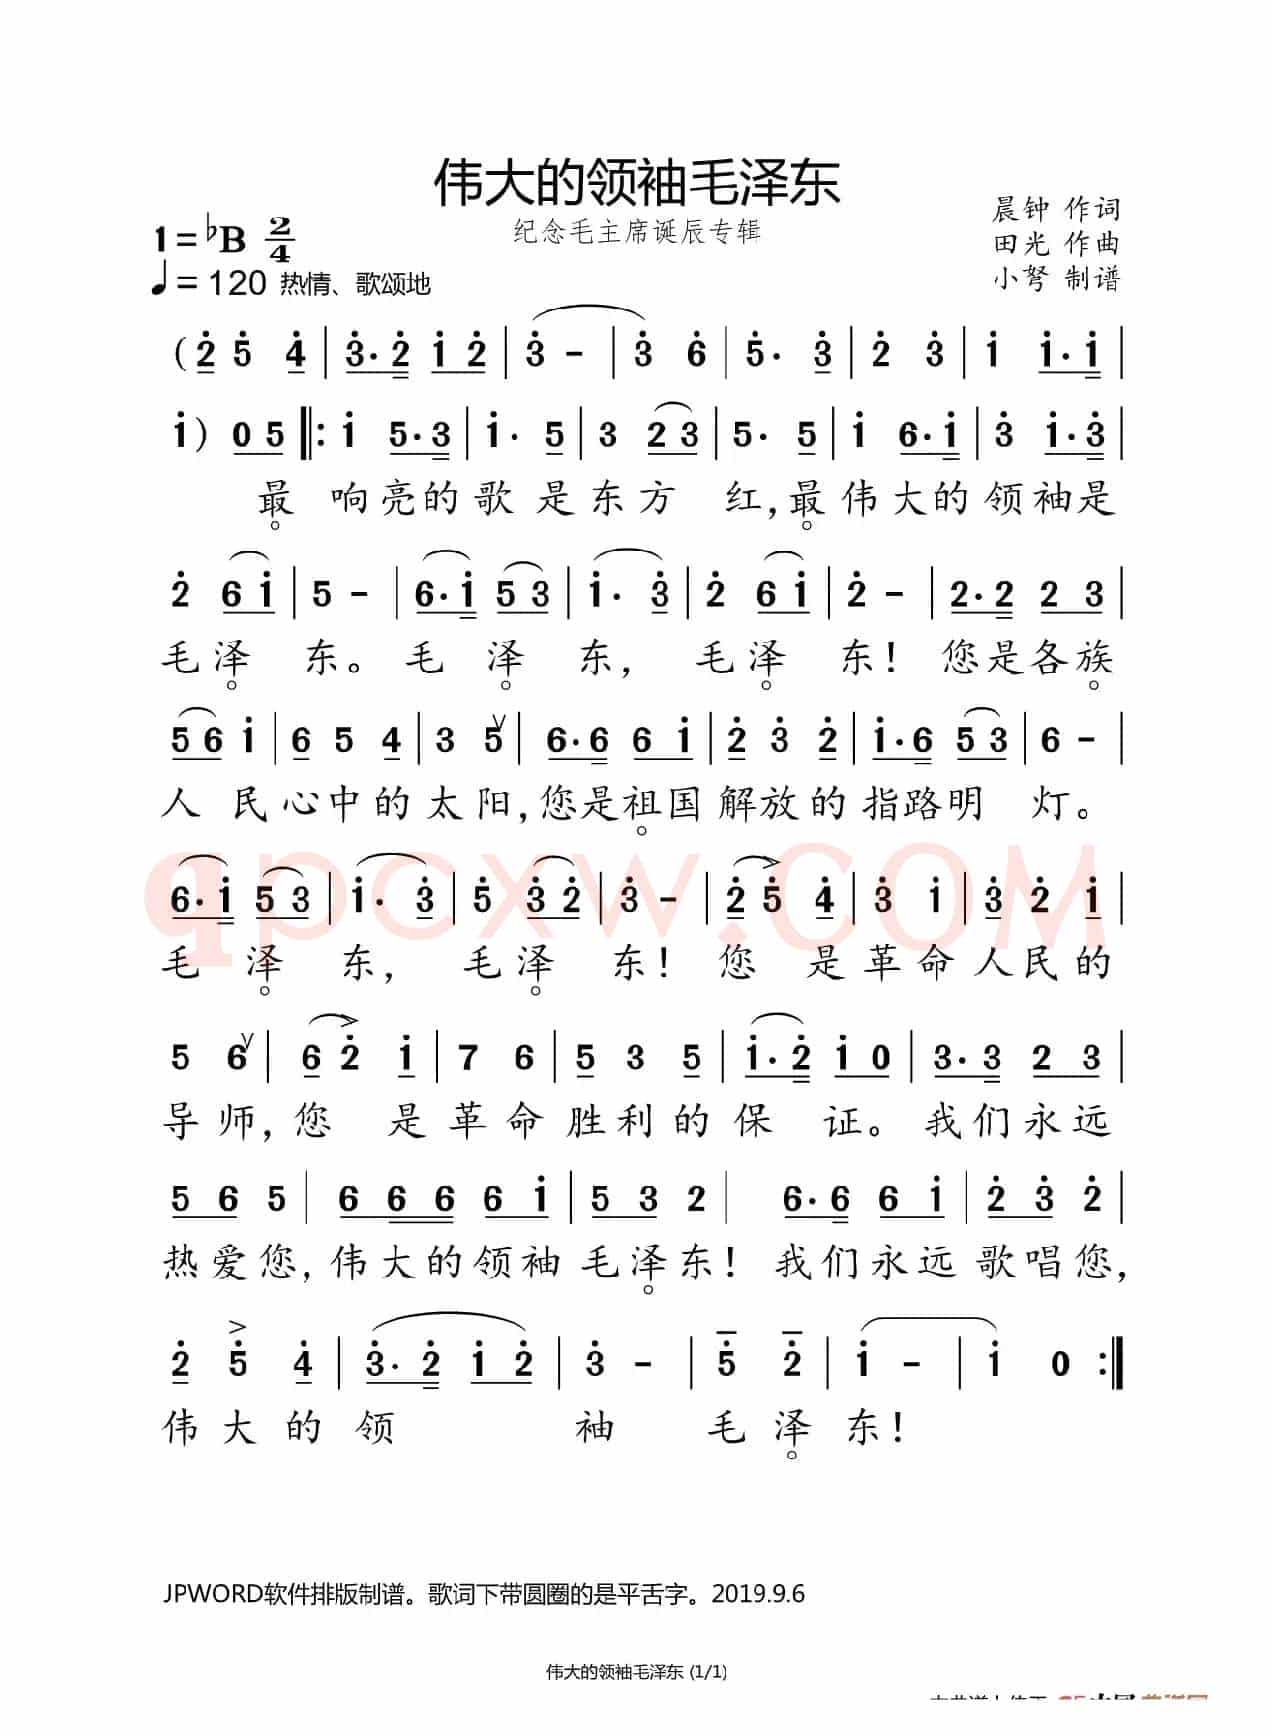 伟大的领袖毛泽东
纪念毛主席诞辰专辑
晨钟 作词
田光 作曲
小弩 制谱
1=♭B 2/4
♩=120 热情、歌颂地
(2̇ 5̇ 4̇ | 3̇·2̇ 1̇ 2̇ | 3̇ - | 3̇ 6̇ | 5̇· 3̇ | 2̇ 3̇ | 1̇ 1̇·1̇ |
1̇) 0 5 ‖: 1̇ 5·3 | 1̇· 5 | 3 2 3 | 5· 5 | 1̇ 6·1̇ | 3̇ 1̇·3̇ |
最 响亮的歌 是东方 红,最伟大的领袖是
2̇ 6 1̇ | 5 - | 6·1̇ 5 3 | 1̇· 3̇ | 2̇ 6 1̇ | 2̇ - | 2·2 2 3 |
毛泽 东。毛 泽 东, 毛泽 东! 您是各族
5 6 1̇ | 6 5 4 | 3 5 ∨ | 6·6 6 1̇ | 2̇ 3̇ 2̇ | 1̇·6 5 3 | 6 - |
人 民心中的太阳,您是祖国解放的指路明 灯。
qpcxw.COM
6·1̇ 5 3 | 1̇· 3̇ | 5̇ 3̇ 2̇ | 3̇ - | 2̇ 5̇ > 4̇ | 3̇ 1̇ | 3̇ 2̇ 1̇ |
毛 泽 东, 毛泽 东! 您 是革命人民的
5 6 ∨ | 6 2̇ > 1̇ | 7 6 | 5 3 5 | 1̇·2̇ 1̇ 0 | 3·3 2 3 |
导师,您 是革命胜利的保 证。我们永远
5 6 5 | 6 6 6 6 1̇ | 5 3 2 | 6·6 6 1̇ | 2̇ 3̇ 2̇ |
热爱您,伟大的领袖毛泽东! 我们永远歌唱您,
2̇ 5̇ > 4̇ | 3̇·2̇ 1̇ 2̇ | 3̇ - | 5̇ 2̇ | 1̇ - | 1̇ 0 :‖
伟大的领 袖 毛泽东!
JPWORD软件排版制谱。歌词下带圆圈的是平舌字。2019.9.6
伟大的领袖毛泽东 (1/1)